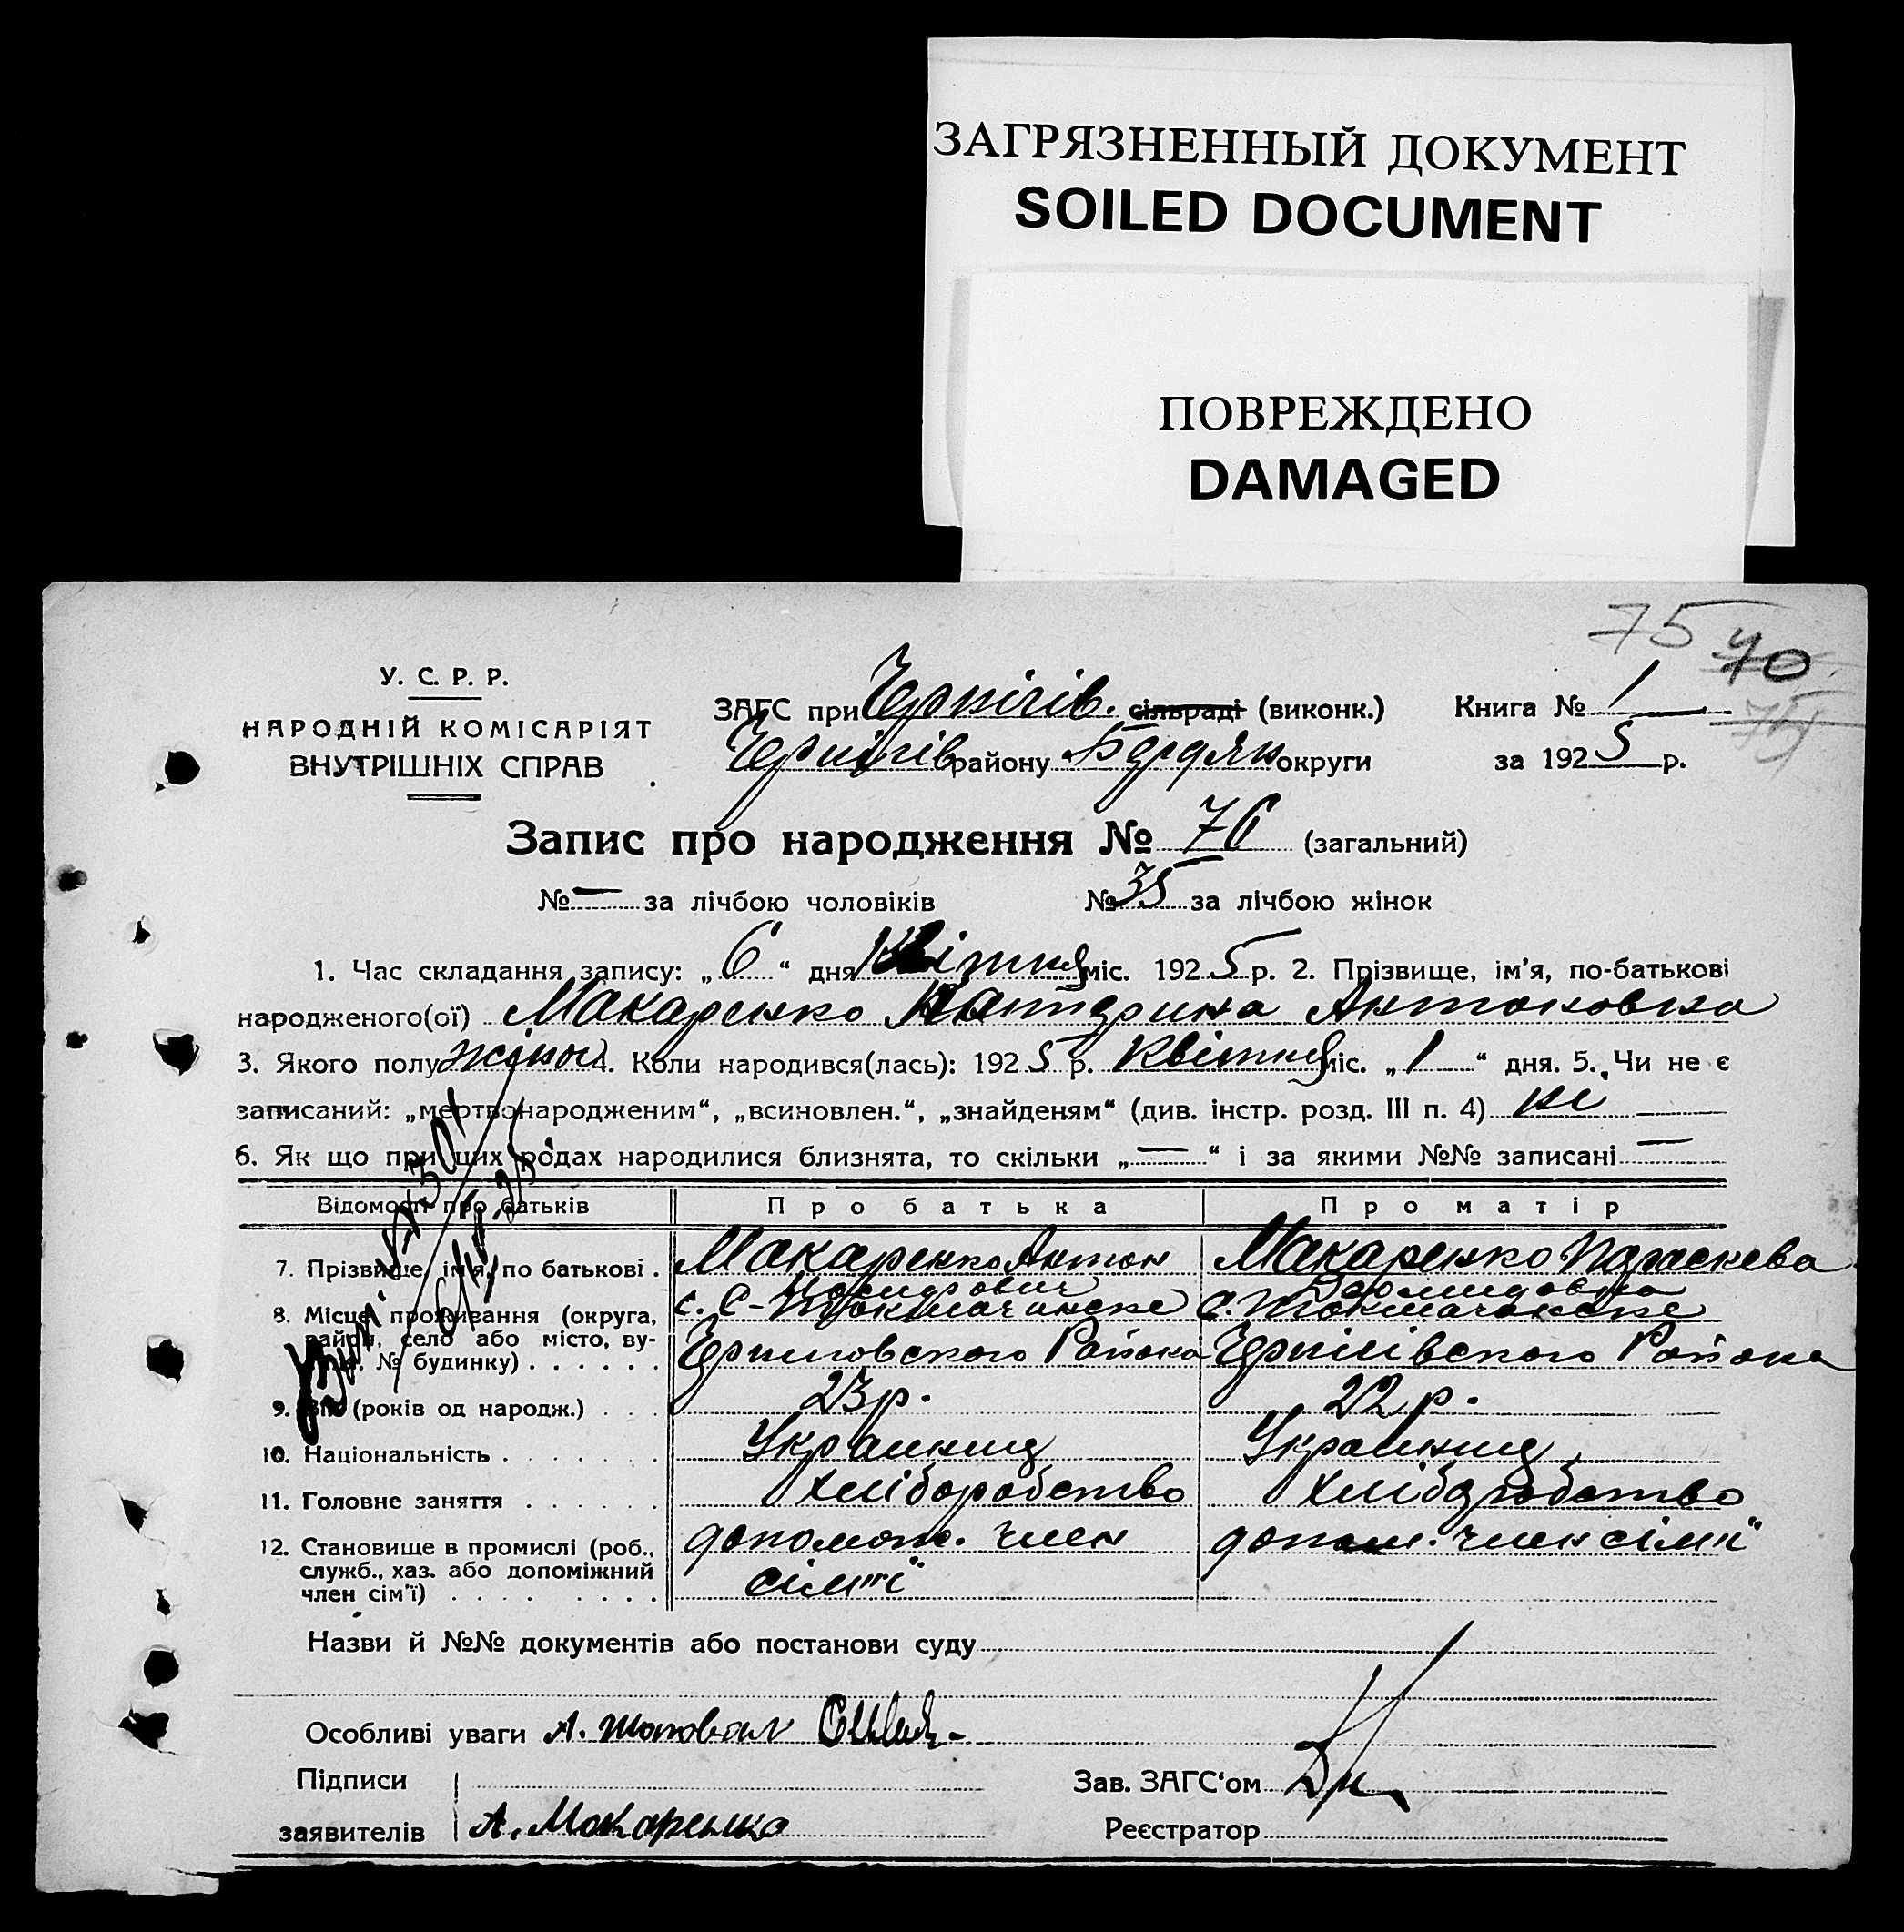 ЗАГРЯЗНЕННЫЙ ДОКУМЕНТ
SOILED DOCUMENT
ПОВРЕЖДЕНО
DAMAGED
75 70
75
У. С. Р. Р.
НАРОДНІЙ КОМІСАРІЯТ
ВНУТРІШНІХ СПРАВ
ЗАГС при Чернігів. сільраді (виконк.) Книга № 1
Чернігів району Бердян округи за 1925 р.
Запис про народження № 76 (загальний)
№ — за лічбою чоловіків № 35 за лічбою жінок
1. Час складання запису: „6“ дня Квітня міс. 1925 р. 2. Прізвище, ім'я, по-батькові
народженого(ої) Макаренко Катерина Антоновна
3. Якого полу жіноч 4. Коли народився(лась): 1925 р. Квітня міс. „1“ дня. 5. Чи не є
записаний: „мертвонародженим“, „всиновлен.“, „знайденям“ (див. інстр. розд. III п. 4) не
6. Як що при цих родах народилися близнята, то скільки „—“ і за якими №№ записані —
Відомості про батьків Про батька Про матір
7. Прізвище, ім'я, по батькові . Макаренко Антон Макаренко Параскева
8. Місце проживання (округа, район, село або місто, ву- № будинку) . . . . . .
с. С-Токмачанске с. Токмачанске
Черниговского Района Чернігівского Района
9. Вік (років од народж.) . . . 23 р. 22 р.
10. Національність . . . . . . . Украинец Украинец
11. Головне заняття . . . . . . хліборобство хліборобство
12. Становище в промислі (роб., служб., хаз. або допоміжний член сім'ї) . . . . . . . .
допомож. член сімії допом. член сімії
Назви й №№ документів або постанови суду
Особливі уваги А. Шаповал
Підписи Зав. ЗАГС'ом
заявителів А. Макаренко Реєстратор